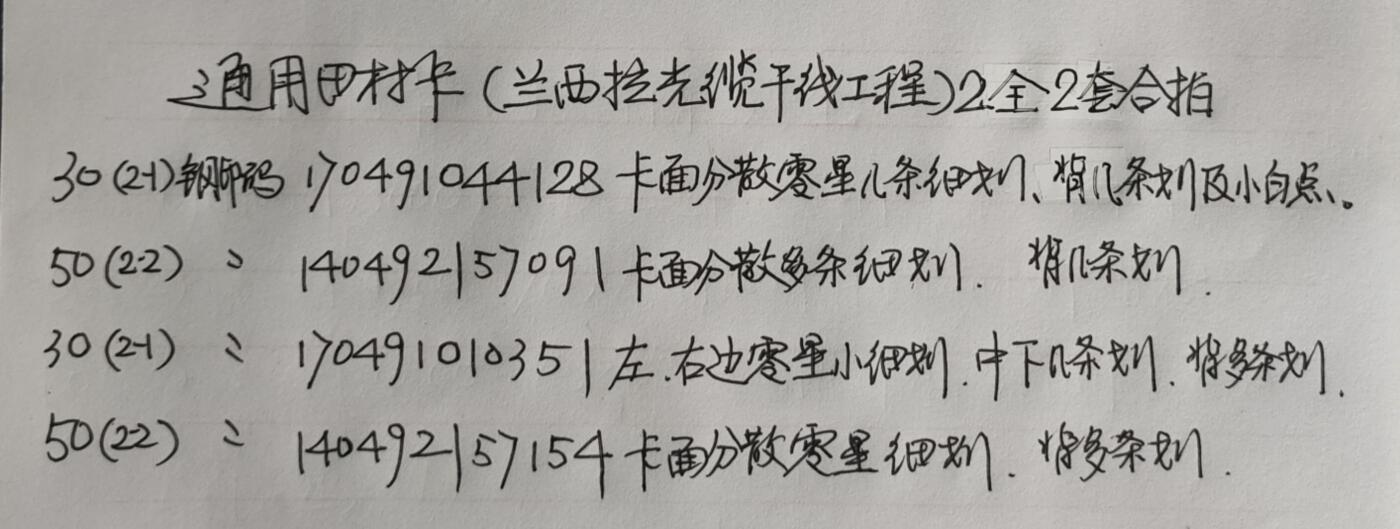 通用田村卡(兰西拉光缆干线工程)2全2套合拍
30(2-1)钢印码 170491044128 卡面分散零星几条细划、背几条划及小白点、。
50(2-2) 〃 140492157091 卡面分散多条细划. 背几条划.
30(2-1) 〃 170491010351 左.右边零星小细划.中下几条划.背多条划.
50(2-2) 〃 140492157154 卡面分散零星细划.背多条划.